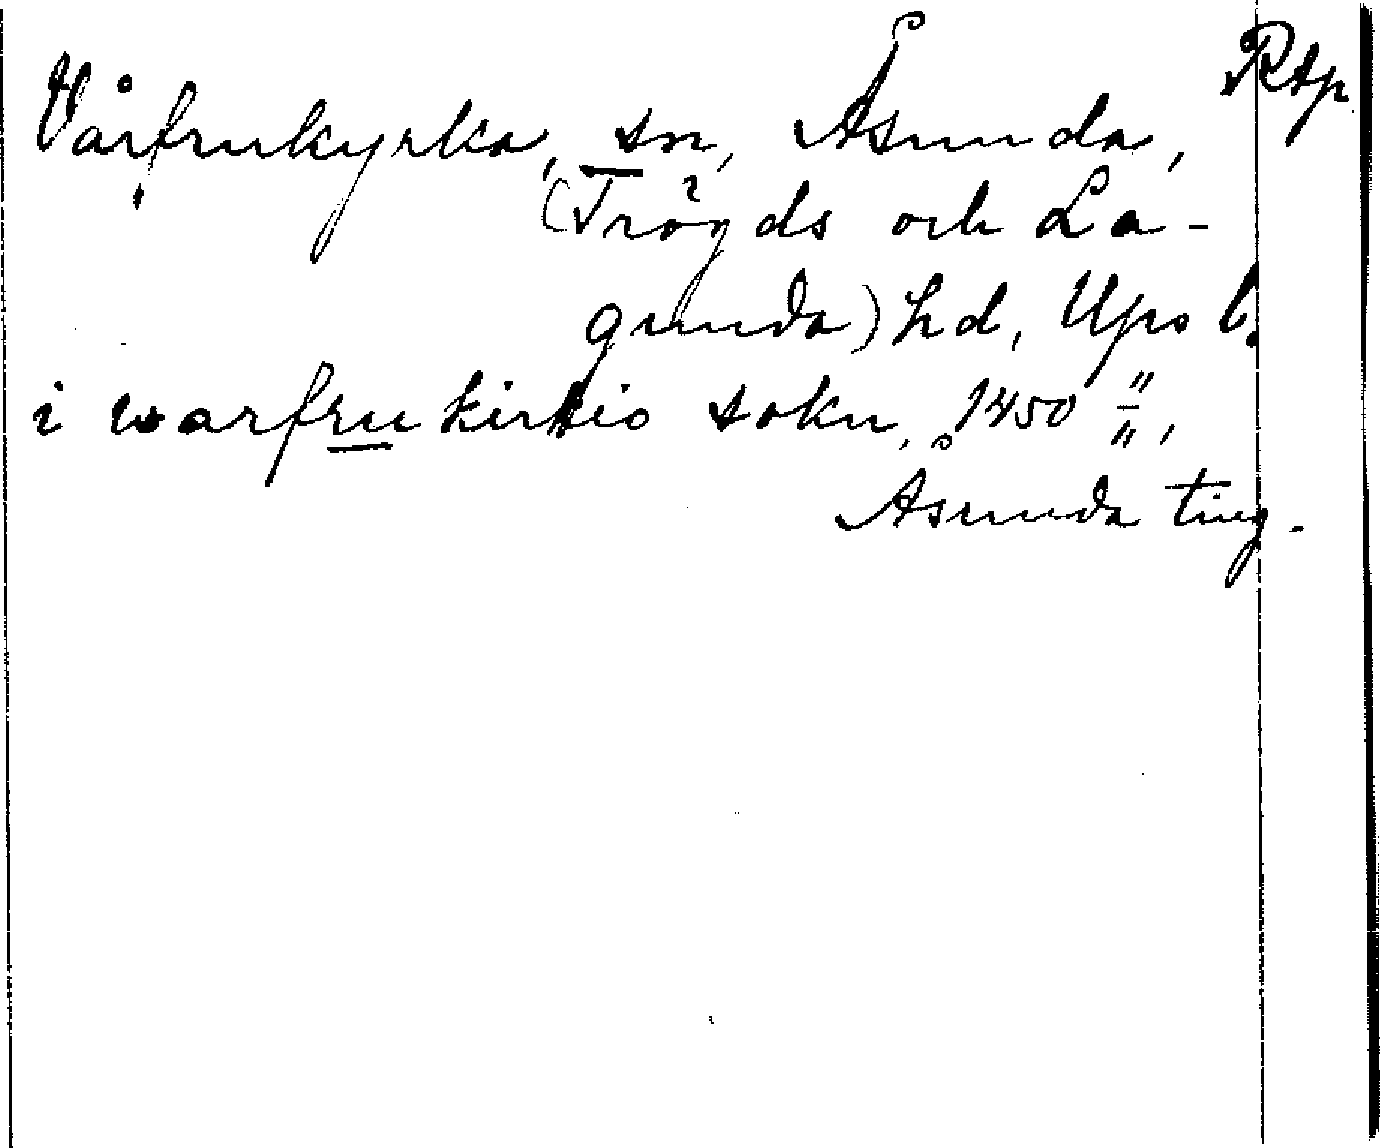 Rtp
Vårfrukyrka, sn, Åsunda,
(Trögds och La-
gunda) hd, Ups l.
i warfrukirkio sokn, 1450 "/",
Åsunda ting.